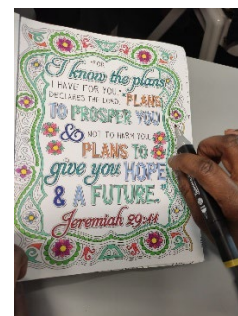 "FOR
I know the plans
I HAVE FOR YOU,"
DECLARES THE LORD, "PLANS
TO PROSPER YOU
& NOT TO HARM YOU,
PLANS TO
give you HOPE
& A FUTURE."
Jeremiah 29:11